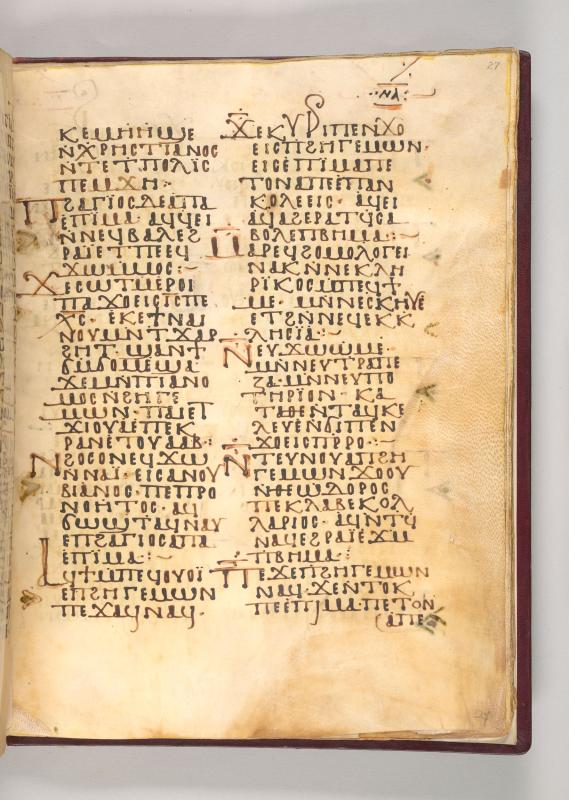 ⲙⲅ
ⲕⲉⲙⲏⲏϣⲉ
ⲛ̀ⲭⲣⲏⲥⲧⲓⲁⲛⲟⲥ
ⲛ̀ⲧⲉⲧⲡⲟⲗⲓⲥ
ⲡⲉⲙϫⲏ:
ⲡϩⲁⲅⲓⲟⲥ ⲇⲉ ⲁⲡⲁ
ⲉⲡⲓⲙⲁ· ⲁϥϥⲉⲓ
ⲛ̀ⲛⲉϥⲃⲁⲗ ⲉϩ
ⲣⲁⲓ̈ ⲉⲧⲡⲉ ⲉϥ
ϫⲱ ⲙⲙⲟⲥ:
ϫⲉ ⲥⲱⲧⲙ ⲉⲣⲟⲓ
ⲡⲁϫⲟⲉⲓⲥ ⲓⲥ ⲡⲉ
ⲭⲥ· ⲉⲕⲉϯ ⲛⲁⲓ
ⲛⲟⲩⲙⲛⲧϩⲁⲣ
ϣϩⲏⲧ· ϣⲁⲛϯ
ϭⲙϭⲟⲙ ⲉϣⲁ
ϫⲉ ⲙⲛ ⲡⲓⲁⲛⲟ
ⲙⲟⲥ ⲛϩⲏⲅⲉ
ⲙⲱⲛ· ⲡⲁⲓ ⲉⲧ
ϫⲓⲟⲩⲁ ⲉⲡⲉⲕ
ⲣⲁⲛ ⲉⲧⲟⲩⲁⲁⲃ:
ⲛϩⲟⲥⲟⲛ ⲉϥϫⲱ
ⲛ̀ⲛⲁⲓ̈· ⲉⲓⲥ ⲁⲛⲟⲩ
ⲃⲓⲁⲛⲟⲥ· ⲡⲉⲡⲣⲟ
ⲛⲟⲏⲧⲟⲥ· ⲁϥ
ϭⲱϣⲧ ⲁϥⲛⲁⲩ
ⲉⲡϩⲁⲅⲓⲟⲥ ⲁⲡⲁ
ⲉⲡⲓⲙⲁ:
ⲁϥϯ ⲙⲡⲉϥⲟⲩⲟⲓ
ⲉⲡϩⲏⲅⲉⲙⲱⲛ
ⲡⲉϫⲁϥ ⲛⲁϥ·
ϫⲉ ⲕⲩⲣⲓ ⲡⲉⲛϫⲟ
ⲉⲓⲥ ⲉⲡϩⲏⲅⲉⲙⲱⲛ·
ⲉⲓⲥ ⲉⲡⲓⲙⲁ ⲡⲉ
ⲧⲟⲛⲁⲡⲉ ⲙⲡⲁⲛ
ⲕⲟⲗⲉⲉⲓⲥ· ⲁϥⲉⲓ
ⲁϥⲁϩⲉⲣⲁⲧϥ ϩⲁ
ⲃⲟⲗ ⲉⲡⲃⲏⲙⲁ:
ⲙⲁⲣⲉϥϩⲟⲙⲟⲗⲟⲅⲉⲓ
ⲛⲁⲕ ⲛ̀ⲛⲉⲕⲗⲏ
ⲣⲓⲕⲟⲥ ⲙⲡⲉϥϯ
ⲙⲉ· ⲙⲛ ⲛⲉⲥⲕⲏⲩⲉ
ⲉⲧϩⲛ ⲛⲉϥⲉⲕⲕ
ⲗⲏⲥⲓⲁ:
ⲛⲉⲩϫⲱⲱⲙⲉ·
ⲙⲛ ⲛⲉⲩⲧⲣⲁⲡⲉ
ⲍⲁ ⲙⲛ ⲛⲉⲩⲡⲟ
ⲧⲏⲣⲓⲟⲛ· ⲕⲁ
ⲧⲁ ⲑⲉ ⲛⲧⲁϥⲕⲉ
ⲗⲉⲩⲉ ⲛϭⲓ ⲡⲉⲛ
ϫⲟⲉⲓⲥ ⲡⲣⲣⲟ:
ⲛⲧⲉⲩⲛⲟⲩ ⲁⲡϩⲏ
ⲅⲉⲙⲱⲛ ϫⲟⲟⲩ
ⲛ̀ⲑⲉⲱⲇⲱⲣⲟⲥ
ⲡⲉⲕⲗⲁⲃⲉⲕⲟⲗ
ⲗⲁⲣⲓⲟⲥ· ⲁϥⲛⲧϥ
ⲛⲁϥ ⲉϩⲣⲁⲓ̈ ⲉϫⲙ
ⲡⲃⲏⲙⲁ:
ⲡⲉϫⲉ ⲡϩⲏⲅⲉⲙⲱⲛ
ⲛⲁϥ· ϫⲉ ⲛⲧⲟⲕ
ⲡⲉ ⲉⲡⲓⲙⲁ· ⲡⲉⲧⲟⲛ
ⲁⲡⲉ
27